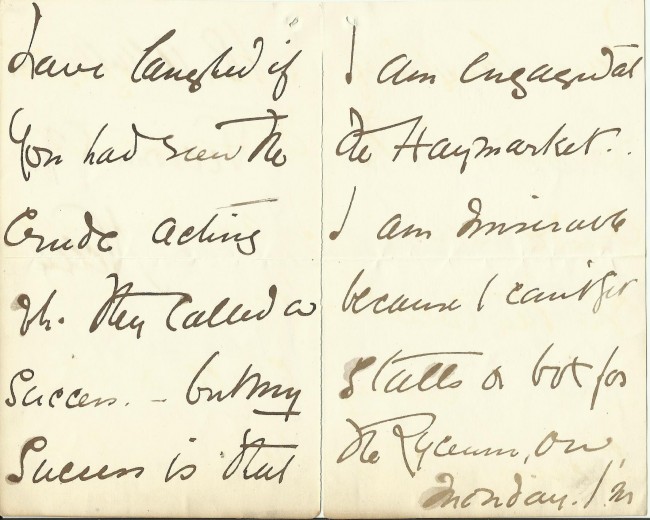 have laughed if
You had seen the
Crude acting
wh. they called a
Success. – but my
Success is that
I am engaged at
the Haymarket.
I am miserable
because I can't get
Stalls or box for
the Lyceum, on
Monday. I'm